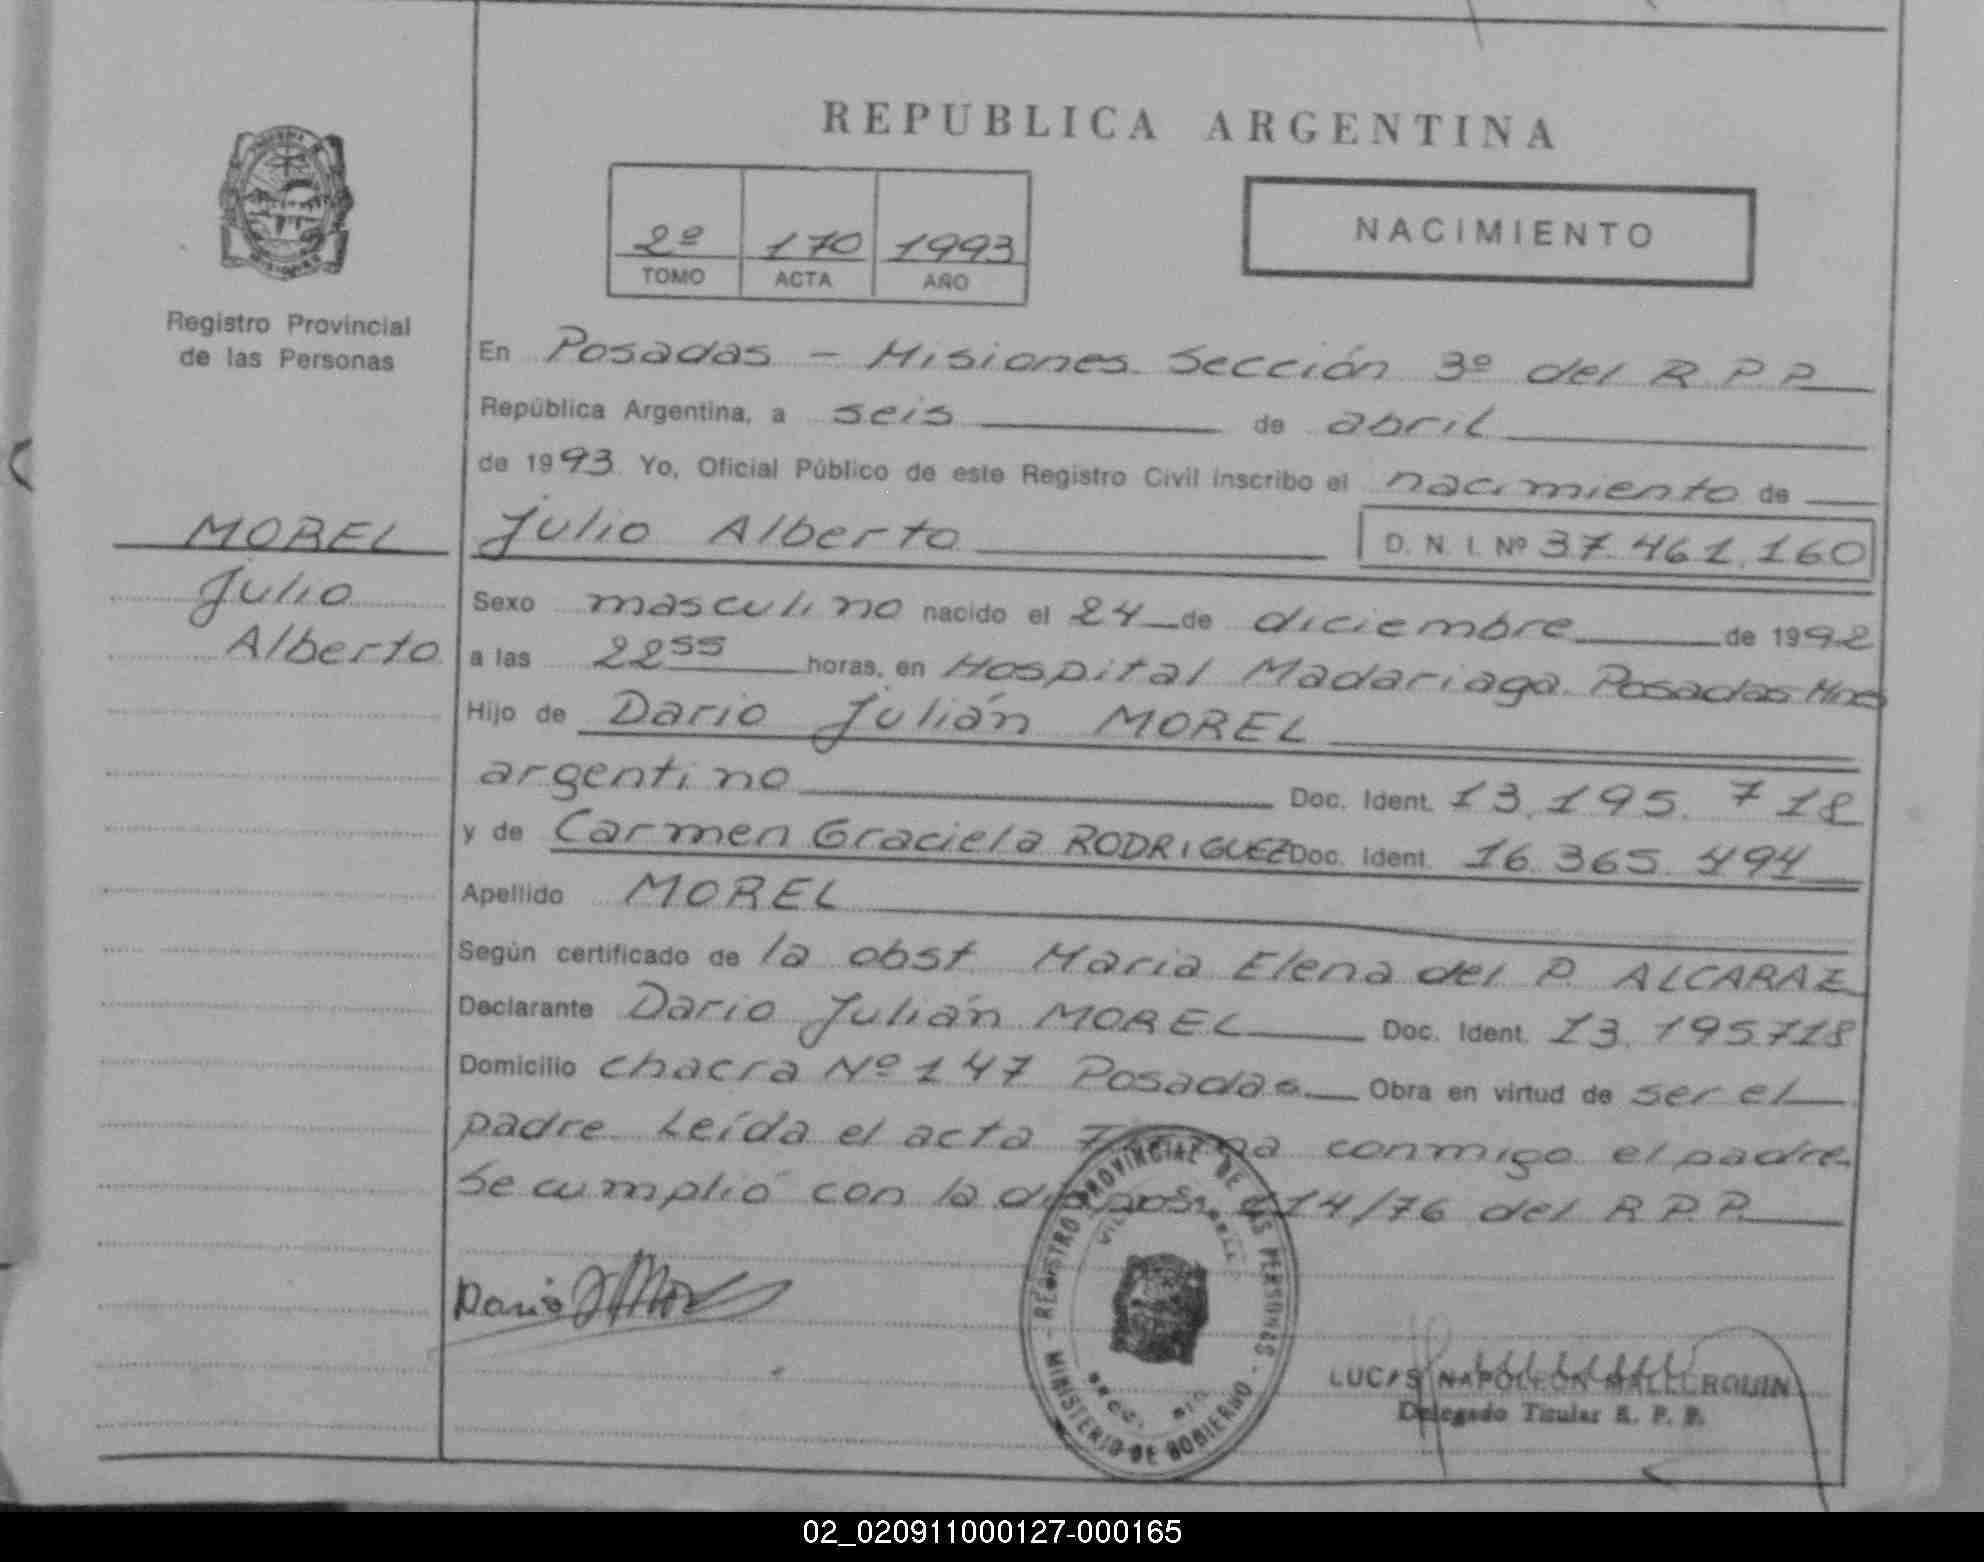 REPUBLICA ARGENTINA
2º 170 1993
TOMO ACTA AÑO
NACIMIENTO
Registro Provincial
de las Personas
MOREL
Julio
Alberto
En Posadas - Misiones Sección 3º del R.P.P.
República Argentina, a seis de abril
de 1993 Yo, Oficial Público de este Registro Civil inscribo el nacimiento de
Julio Alberto D. N. I. Nº 37.461.160
Sexo masculino nacido el 24 de diciembre de 1992
a las 22 55 horas, en Hospital Madariaga. Posadas Mnes
Hijo de Dario Julián MOREL
argentino Doc. Ident. 13.195.718
y de Carmen Graciela RODRIGUEZ Doc. Ident. 16.365.494
Apellido MOREL
Según certificado de la obst Maria Elena del P. ALCARAZ
Declarante Dario Julián MOREL Doc. Ident. 13.195.718
Domicilio chacra Nº 147 Posadas Obra en virtud de ser el
padre. Leída el acta firma conmigo el padre
Se cumplió con la 414/76 del R.P.P.
Dario
REGISTRO PROVINCIAL DE LAS PERSONAS
MINISTERIO DE GOBIERNO
LUCAS NAPOLEON
Delegado Titular R. P. P.
02_020911000127-000165